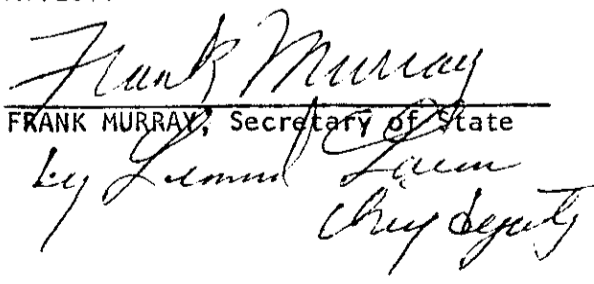 Frank Murray
FRANK MURRAY, Secretary of State
by
Chief Deputy